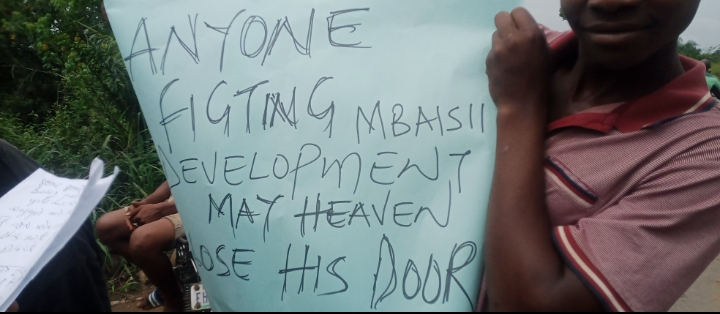 ANYONE
FIGTING MBAISII
DEVELOPMENT
MAY HEAVEN
LOSE HIS DOOR